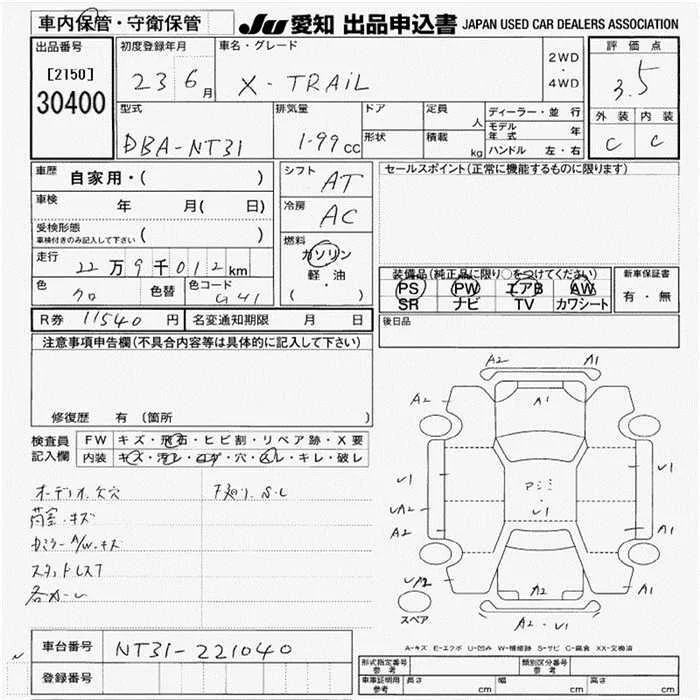 車内保管・守衛保管
JU 愛知 出品申込書 JAPAN USED CAR DEALERS ASSOCIATION
出品番号
[2150]
30400
初度登録年月
23 6月
車名・グレード
X-TRAIL
2WD
・
4WD
評価点
3.5
外装 内装
C C
型式
DBA-NT31
排気量
1.99cc
ドア
形状
定員 人
積載 kg
ディーラー・並行
モデル年式 年
ハンドル 左・右
車歴 自家用・( )
車検 年 月( 日)
受検形態
車検付きのみ記入して下さい ( )
走行 22万9千012km
色 クロ 色替 色コード G41
シフト AT
冷房 AC
燃料
ガソリン
軽油
( ・ )
セールスポイント(正常に機能するものに限ります)
装備品(純正品に限り○をつけてください)
PS PW エアB AW
SR ナビ TV カワシート
新車保証書
有・無
R券 11540円 名変通知期限 月 日
後日品
注意事項申告欄(不具合内容等は具体的に記入して下さい)
修復歴 有 (箇所 )
検査員記入欄
FW キズ・飛石・ヒビ割・リペア跡・X要
内装 キズ・汚レ・コゲ・穴・スレ・キレ・破レ
オーディオ欠穴
下廻り S.C
荷室・キズ
Dミラー A/W・キズ
スタッドレスT
A2 A1
A2 A1 A1
U1 U1
UA2 U1
A2 A1
A2 A1
A2・U1
スペア
A-キズ E-エクボ U-凹み W-補修跡 S-サビ C-腐食 XX-交換済
車台番号 NT31-221040
登録番号
形式指定番号 参考
類別区分番号 参考
車車証明用 参考 長さ cm 幅 cm 高さ cm